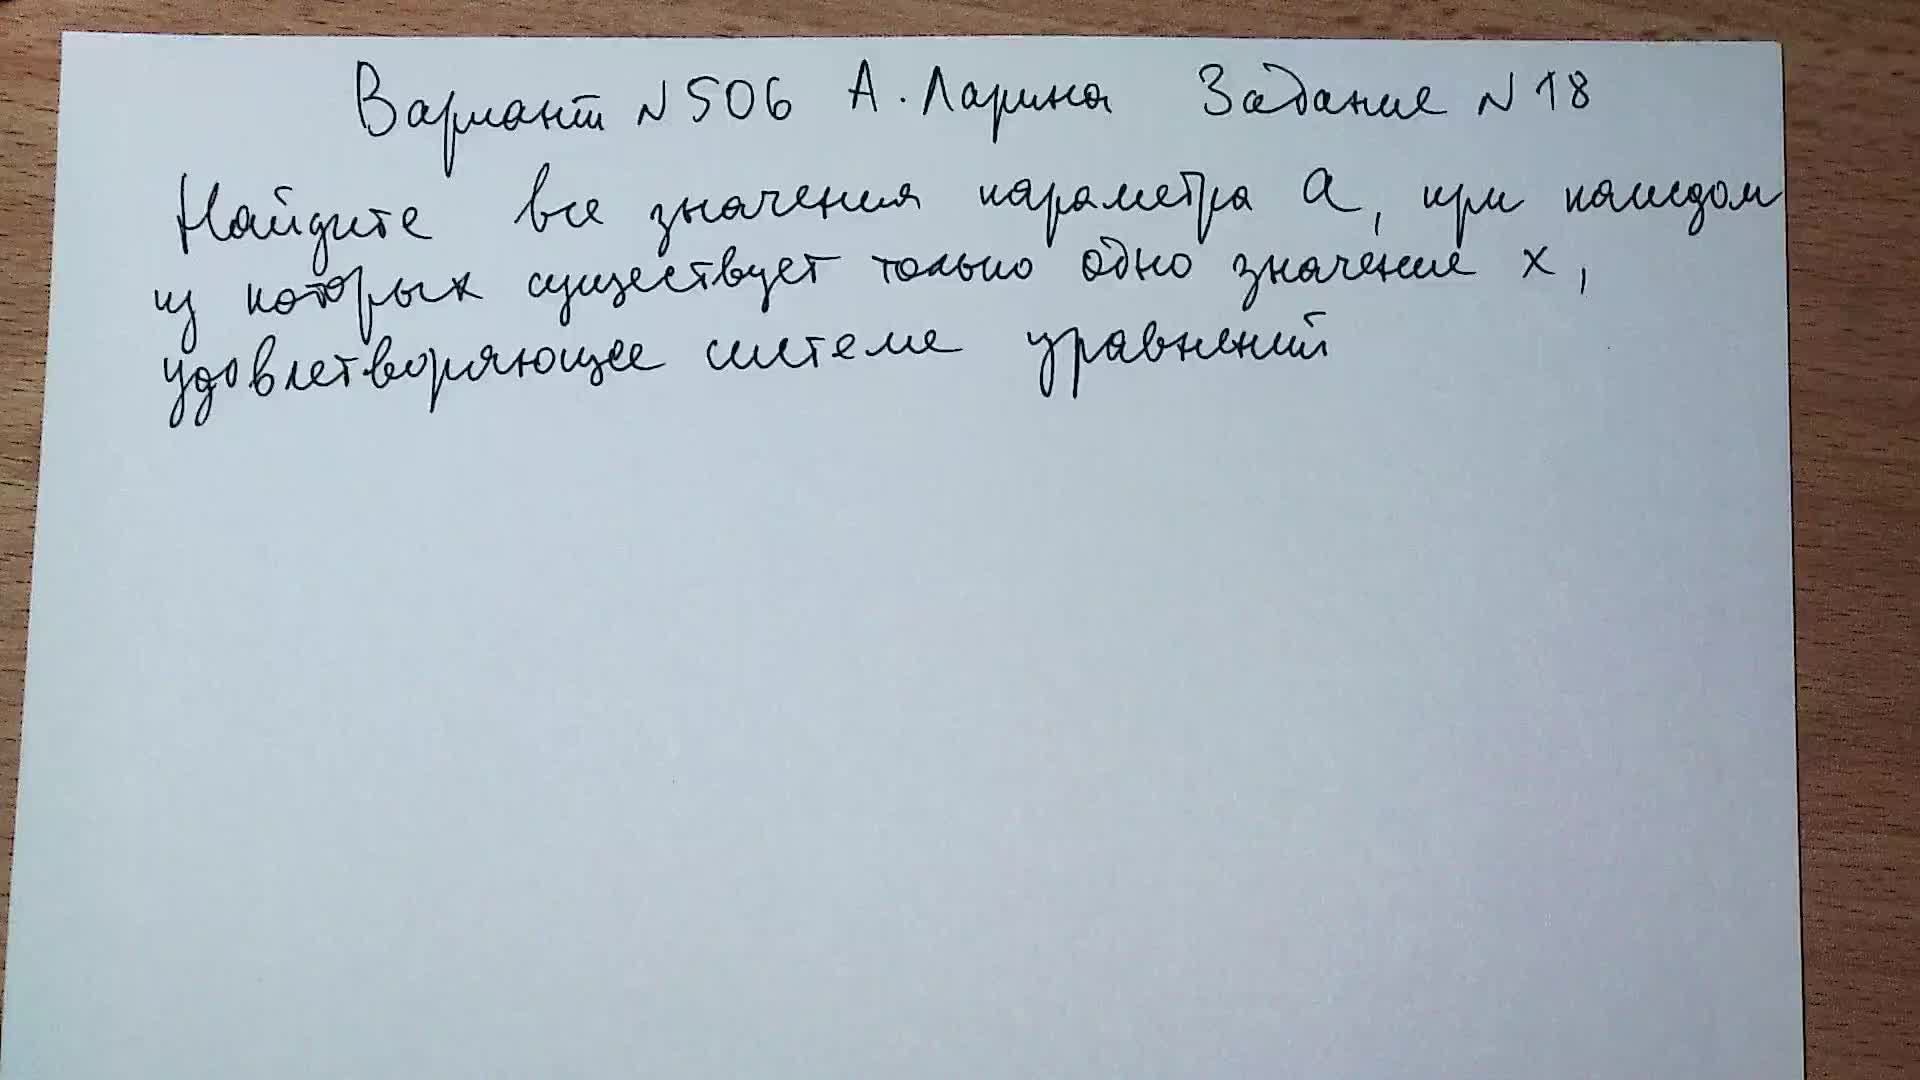 Вариант N 506 А. Ларина Задание N 18
Найдите все значения параметра а, при каждом
из которых существует только одно значение х,
удовлетворяющее системе уравнений